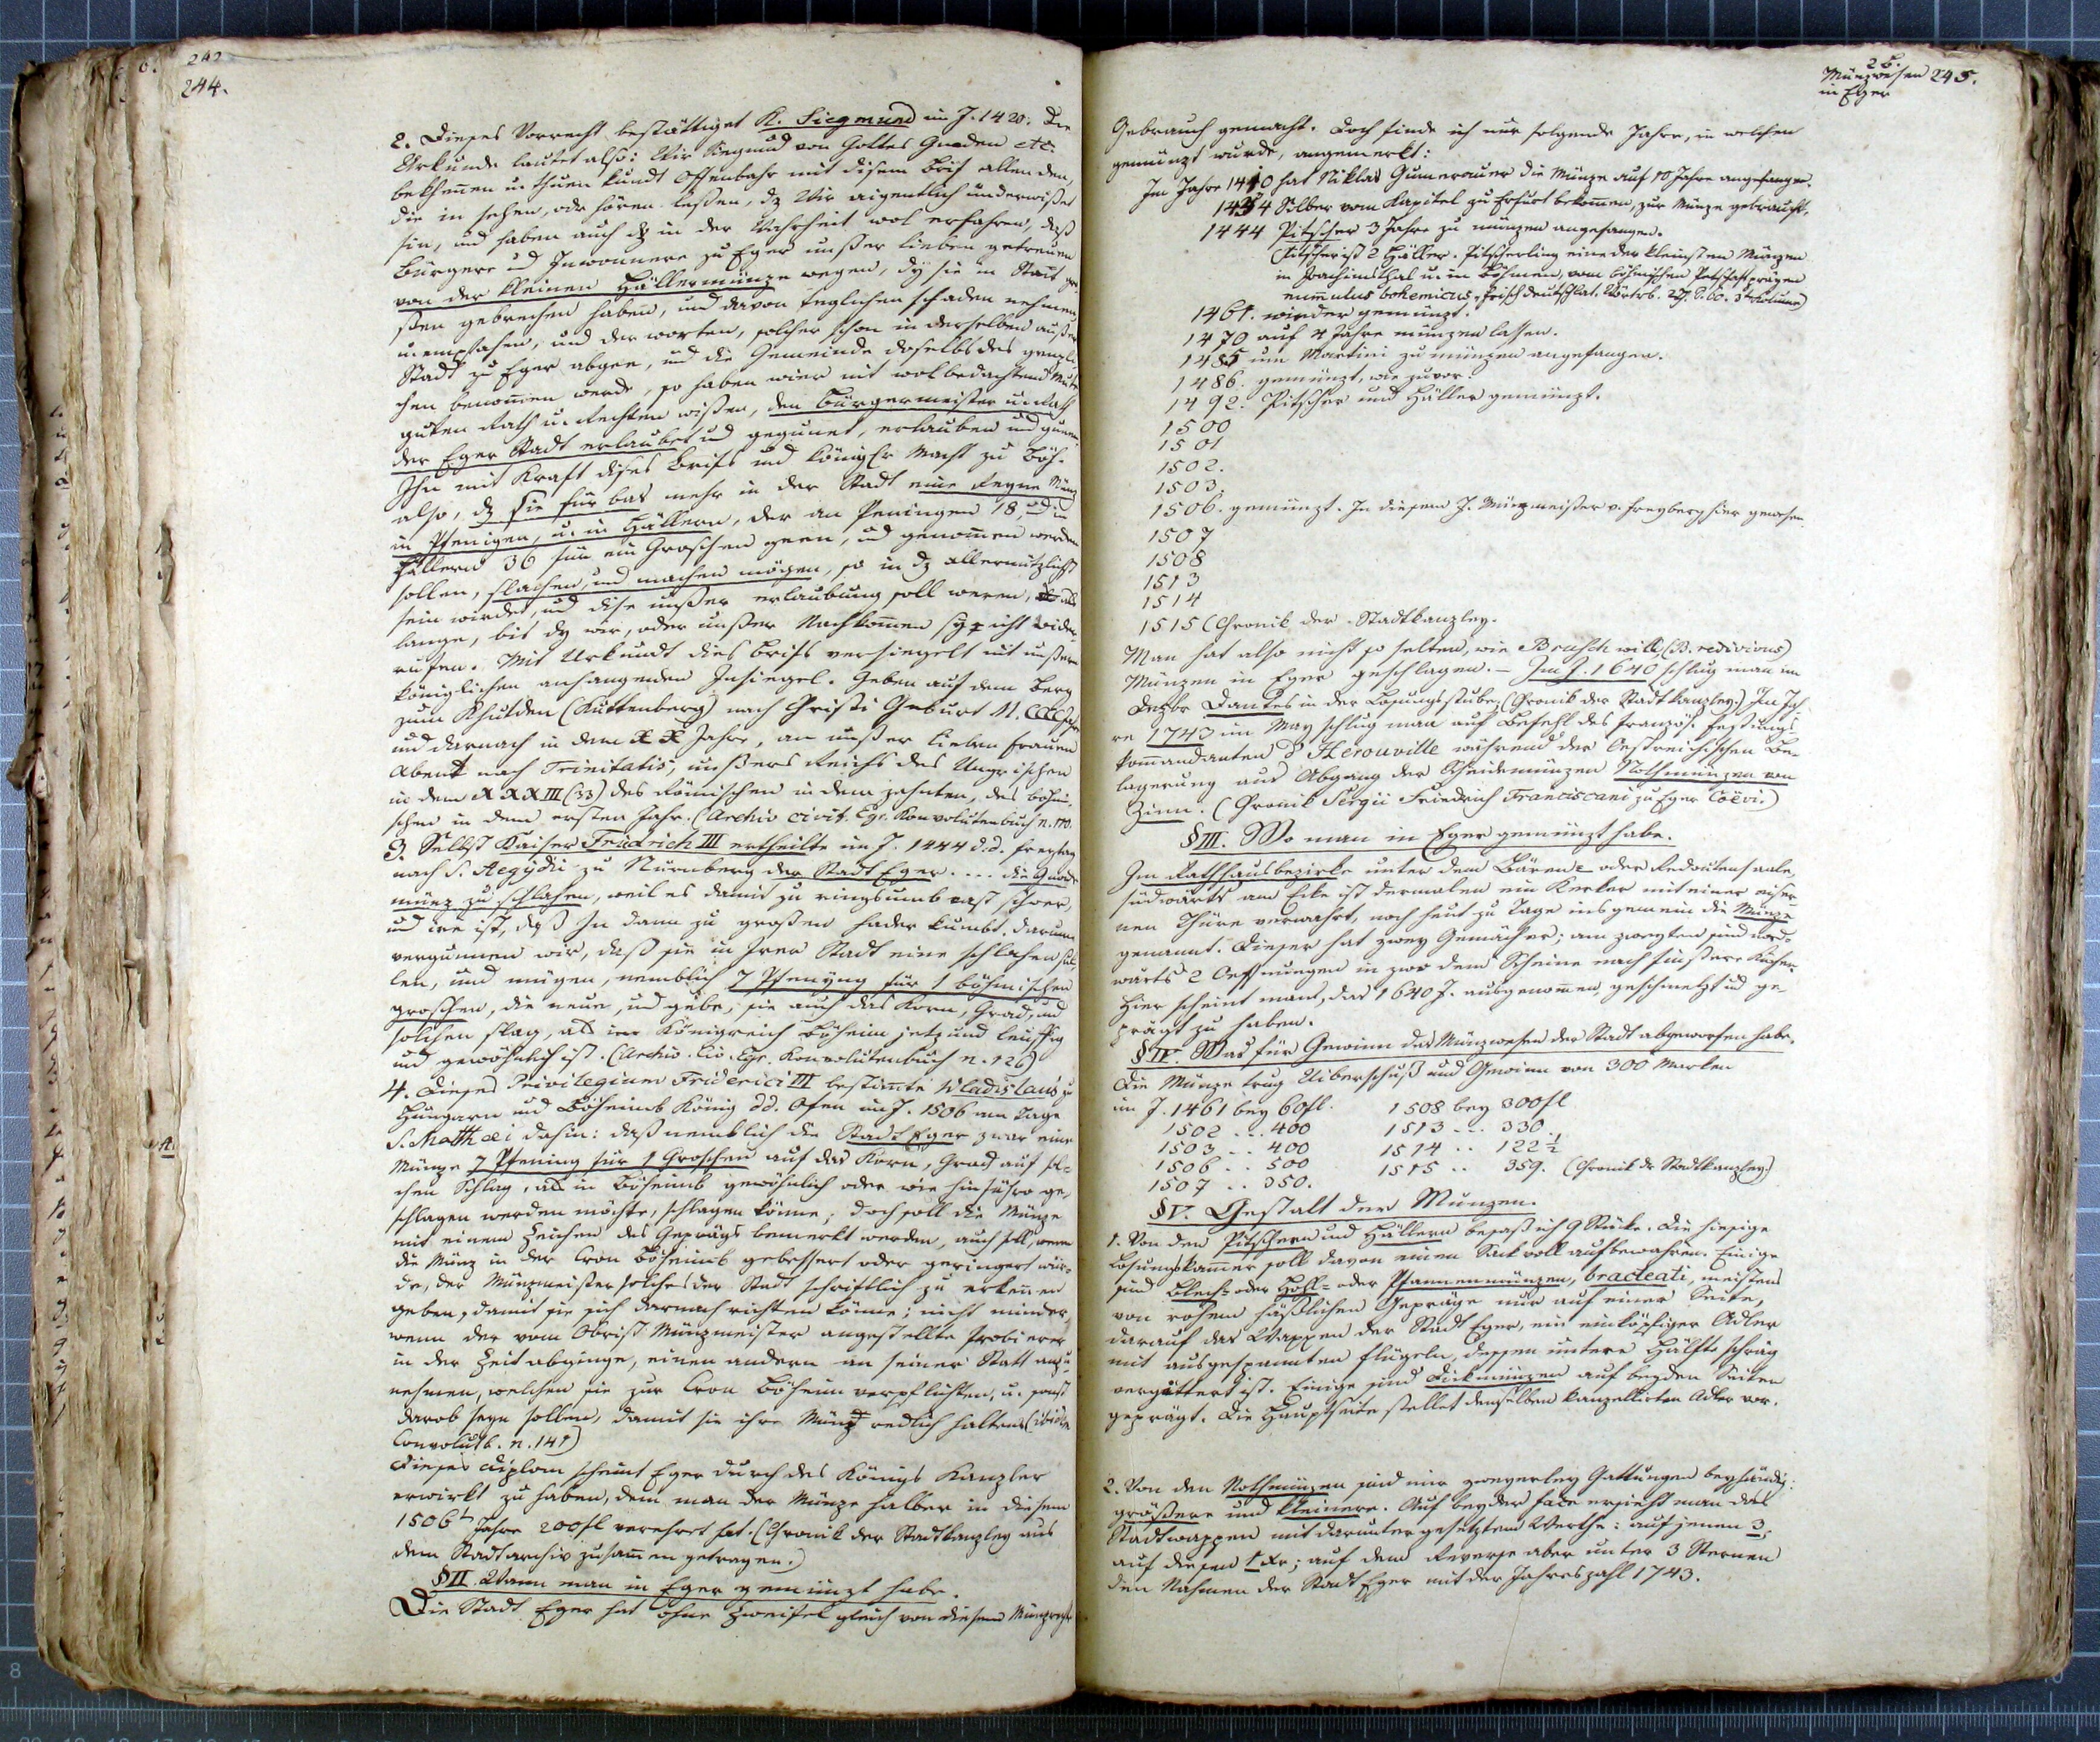 242
244.
2. Dieses Vorrecht bestättiget K. Siegmund im J. 1420. Die
Urkunde lautet also: Wir Siegmund von Gottes Gnaden etc.
bekhennen u. thuen kundt Offenbahr mit disem Brif allen den,
die in sehen, odr hören lessen, dz Wir aigentlich underwisen
sin, und haben auch dz in der Wahrheit wol erfahren, dass
Bürgere und Inwonnere zu Eger unsser lieben getreuen
von der kleinen Hällermünze wegen, dy sie in Statt
ssen gebrechen haben, und davon teglichen schaden nehmen
u. empfahen, und der worten, solcher schon in derselben ausser
Stadt zu Eger abgee, und die Gemeinde doselbs des genzli
chen benommen werde, so haben wier mit wolbedachtem Muth
guten Rath u. Rechten wissen, den Bürgermeister u. Rath
der Eger Stadt erlaubet und gegunet, erlauben und gunen
Ihn mit Kraft dises Brifs und königlr Macht zu Böh.
also, dz sie für bas mehr in der Stadt eine Regne Münz
in Pfenigen, u. in Hällern, der an Peningen 18, und in
Hällern 36 für ein Groschen geen, und genomen werden
sollen, slachen, und machen mögen, so in dz allernutzlichst
sein wirdt, und dise unsser erlaubung soll weren, als
lange, bis dz wir, oder unsser Nachkomen sy nicht wider-
rufen. Mit Urkundt dies Brifs versiegelt mit unsserm
königlichen anhangenden Insiegel. Geben auf dem Berg
zum Khutden (Kuttenberg) nach Christi Geburt M. CCCC Jahr
und darnach in dem XX Jahre, an unsser lieben Frauen
Abent nach Trinitatis, unssers Reichs des Ungrischen
in dem XXXIII (33) des Römischen in dem zehnten, des böhmi-
schen in dem ersten Jahr. (Archiv civit. Egr. Konvolutenbuch n. 170.
3. Selbst Kaiser Friedrich III ertheilte im J. 1444 d.d. Freytag
nach S. Aegydii zu Nürnberg der Stadt Eger .... die Gnade
münz zu schlahen, weil es damit zu ringsumb vast schwer,
und irre ist, dass In dann zu grossen hader kumbt. Darumb
vergunnen wir, dass sie in Irer Stadt eine schlahen sul-
len, und mügen, nemblich 7 Pfenyng für 1 böhmischen
groschen, die neue, und gäbe, sie auch das Korn, Grad, und
solchen slag, als im Königreich Böheim jetzund leuffig
und gewöhnlich ist. (Archiv. Civ. Egr. Konvolutenbuch n. 126)
4. Dieses Privilegium Friderici III bestimte Wladislaus zu
Hungarn und Böheimb König dd. Ofen im J. 1506 am Tage
S. Matthaei dahin: dass nemblich die Stadt Eger zwar eine
Münze 7 Pfening für 1 Groschen auf das Korn, Grad auf sol-
chen Schlag, als in Böheimb gewöhnlich oder wie hinführo ge-
schlagen werden möchte, schlagen könne; doch soll die Münze
mit einem Zeichen des Geprägs bemerkt werden, auch soll, wenn
die Münz in der Cron Böheimb gebessert oder geringert wür-
de, der Münzmeister solches der Stadt schriftlich zu erkenen
geben, damit sie sich darnach richten könne; nicht minder,
wenn der vom Obrist Münzmeister angestellte Probierer
in der Zeit abginge, einen andern an seiner Statt anzu-
nehmen, welchen sie zur Cron Böheim verpflichten, u. sonst
darob seyn sollen, damit sie ihre Münz redlich halten. (ibidem
Convolutb. n. 141)
Dieses Diplom scheint Eger durch des Königs Kanzler
erwirkt zu haben, dem man der Münze halber in diesem
1506t Jahre 200 fl verehret hat. (Chronik der Stadtkanzley aus
dem Stadtarchiv zusammen getragen.)
§ II. Wann man in Eger gemünzt habe.
Die Stadt Eger hat ohne Zweifel gleich von diesem Münzrecht
28.
Münzwesen 245.
in Eger
Gebrauch gemacht. Doch finde ich nur folgende Jahre, in welchen
gemünzt wurde, angemerkt:
Im Jahre 1410 hat Niklas Gumerauer die Münze auf 10 Jahre angefangen.
1434 Silber vom Kapitel zu Erfurt bekommen, zur Münze gebraucht.
1444 Pitscher 3 Jahre zu münzen angefangen.
(Pitscher ist 2 Häller. Pitscherling eine der kleinsten Münzen
in Joachimsthal u. in Böhmen, vom böhmischen Petschaftprägen
nummulus bohemicus, Frisch deutschlat. Wörterb. 2 Th. S. 60. 3t Kolumne)
1461. wieder gemünzt.
1470 auf 4 Jahre münzen lassen.
1485 um Martini zu münzen angefangen.
1486. gemünzt, wie zuvor.
1492. Pitscher und Häller gemünzt.
1500
1501
1502.
1503.
1506. gemünzt. In diesem J. Münzmeister v. Freyberg hier gewesen.
1507
1508
1513
1514
1515 (Chronik der Stadtkanzley.
Man hat also nicht so selten, wie Brusch will, (B. redivivus)
Münzen in Eger geschlagen. – Im J. 1640 schlug man im
Dezbr Dantes in der Losungsstube, (Chronik der Stadtkanzley.) Im Jah
re 1743 im May schlug man auf Befehl des französ. Festungs
kommandanten d'Herouville während der Oestreichischen Be-
lagerung aus Abgang der Scheidemünzen Nothmünzen von
Zinn. (Chronik Sergii Friedrich Franciscani zu Eger Coëvi.)
§ III. Wo man in Eger gemünzt habe.
Im Rathhausbezirke unter dem Bären- oder Redoutensaale,
südwärts am Ecke ist dermalen ein Kerker mit einer eiser
nen Thüre verwahrt, noch heut zu Tage insgemein die Münze
genannt. Dieser hat zwey Gemächer; am zweyten sind nord-
wärts 2 Oeffnungen in zwo dem Scheine nach finstere Löcher.
Hier scheint man, das 1640 J. ausgenomen, geschmelzt und ge-
prägt zu haben.
§ IV. Was für Gewinn das Münzwesen der Stadt abgeworfen habe.
Die Münze trug Uiberschuss und Gewinn von 300 Marken
im J. 1461 bey 60 fl. 1508 bey 300 fl
1502 ... 400 1513 ... 330
1503 .. 400 1514 .. 122 1/2
1506 .. 500 1515 .. 359. (Chronik dr Stadtkanzley.)
1507 .. 350.
§ V. Gestalt der Munzen.
1. Von den Pitschern und Hällern besass ich 9 Stücke. Die hiesige
Losungskamer soll davon einen Sack voll aufbewahren. Einige
sind Blech- oder Hohl- oder Pfannenmünzen, bracteati, meistens
von rohem hässlichen Gepräge nur auf einer Seite,
darauf das Wappen der Stadt Eger, ein einköpfiger Adler
mit ausgespannten Flügeln, dessen untere Hälfte schräg
vergittert ist. Einige sind Dickmünzen auf beyden Seiten
geprägt. Die Hauptseite stellet denselben kanzellirten Adler vor.
2. Von den Nothmünzen sind mir zweyerley Gattungen beyhändig:
grössere und kleinere. Auf beyder face ersieht man das
Stadtwappen mit darunter gesetztem Werthe: auf jenen 3,
auf diesen 1 Xr; auf dem Reverse aber unter 3 Sternen
den Nahmen der Stadt Eger mit der Jahreszahl 1743.